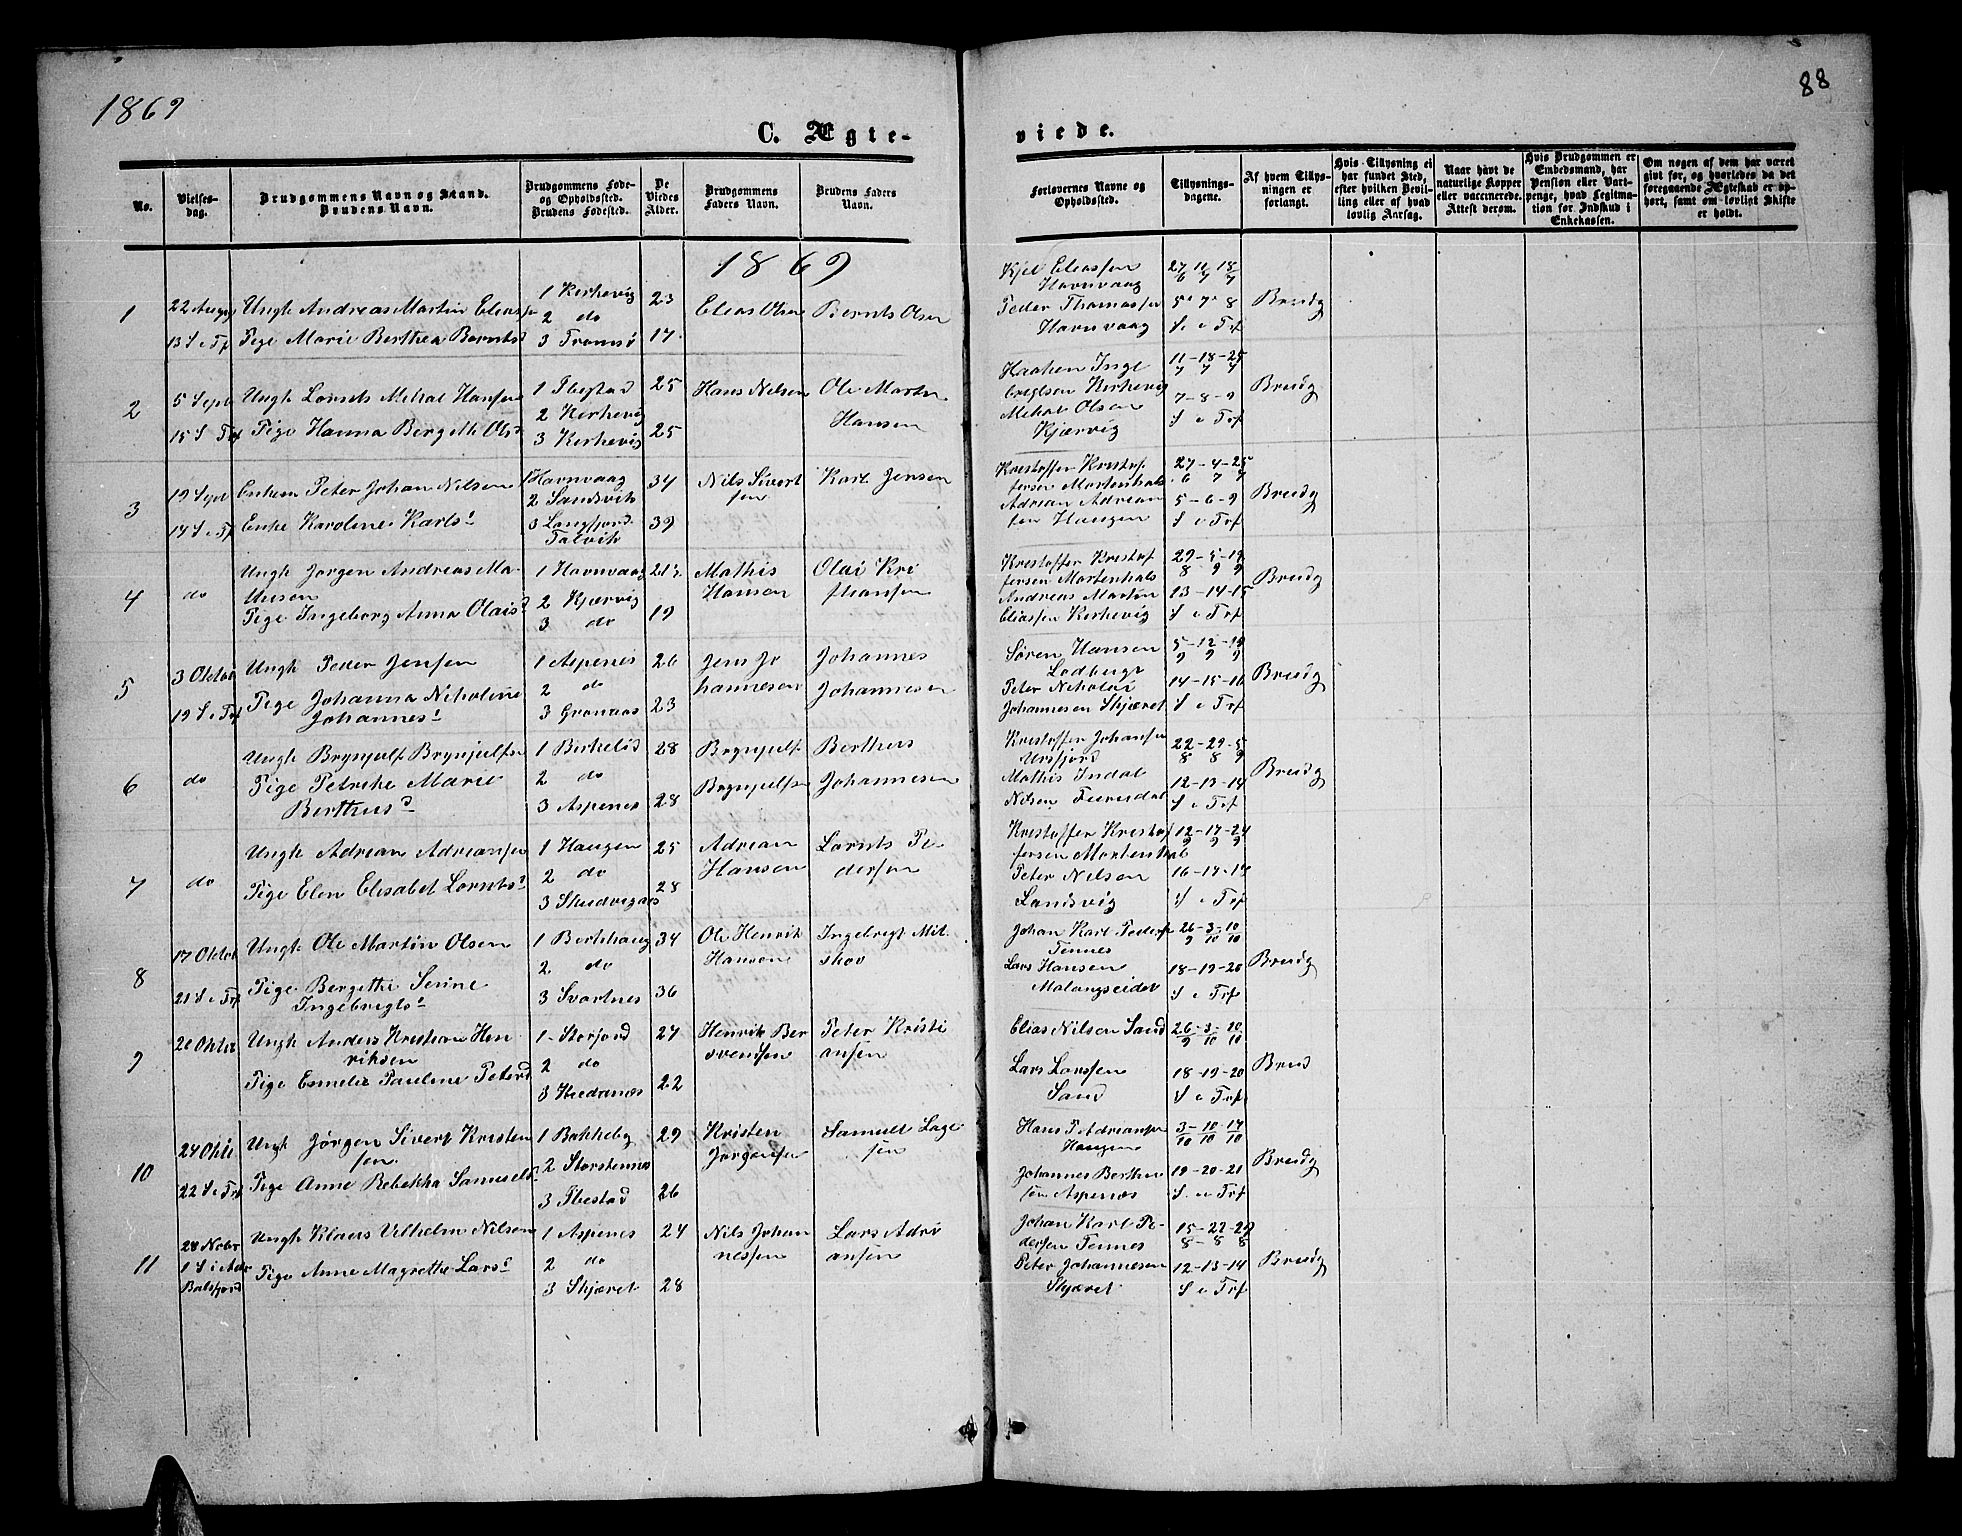 1869
88
C. Ægte-
viede.
No.
Vielses-
dag.
Brudgommens Navn og Stand.
Brudens Navn.
Brudgommens Føde-
og Opholdssted.
Brudens Fødested.
De
Viedes
Alder.
Brudgommens
Faders Navn.
Brudens Faders
Navn.
Forlovernes Navne og
Opholdssted.
Tillysnings-
dagene.
Af hvem Tillys-
ningen er
forlangt.
Hvis Tillysning ei
har fundet Sted,
efter hvilken Bevil-
ling eller af hvad
lovlig Aarsag.
Naar havt de
naturlige Kopper
eller vaccinerede.
Attest derom.
Hvis Brudgommen er
Embedsmand, har
Pension eller Vart-
penge, hvad Legitma-
tion for Indskud i
Enkekassen.
Om nogen af dem har været
givt før, og hvorledes da det
foregaaende Ægteskab er op-
hørt, samt om lovligt Skifte
er holdt.
1869
1
22 August
13 S e Trf
Ungk Andreas Martin Eliassen
Pige Marie Berthea Bernts
1 Kirkevig
2 do
3 Tromsø
23
17
Elias Olsen
Bernts Olsen
Kjel Eliassen
Havnvaag
Peder Thomassen
Havnvaag
27/6 11/7 18/7
5 7 8
S. e Trf
Brudg
2
5 Sept
15 S Trf
Ungk Lornts Mikal Hansen
Pige Hanna Bergithe Ols
1 Ibestad
2 Kirkevig
3 Kirkevig
25
25
Hans Nilsen
Ole Martin
Hansen
Haaken Inge
brigtsen Kirkevig
Mikal Olsen
Kjærvig
11/7 - 18/7 - 25/7
7 - 8 - 9
S e Trf
Brudg
3
19 Sept
17 S e Trf
Enkem Peter Johan Nilsen
Enke Karoline Karls
1 Havnvaag
2 Sandvik
3 Langfjord
Talvik
34
39
Nils Sivert
sen
Karl Jensen
Kristoffer Kristof
fersen Mortenhals
Adrian Adrian
sen Haugen
27/6 - 4/7 - 25/7
5 - 6 - 9
S e Trf
Brudg
4
do
Ungk Jørgen Andreas Ma-
thisen
Pige Ingeborg Anna Olais
1 Havnvaag
2 Kjærvig
3 do
21
19
Mathis
Hansen
Olai Kri
stiansen
Kristoffer Kristof
fersen Mortenhals
Andreas Martin
Eliassen Kirkevig
29/8 - 5/9 - 12/9
13 - 14 - 15
S e Trf
Brudg
5
3 Oktbr
19 S e Trf
Ungk Peder Jensen
Pige Johanna Nikoline
Johannes
1 Aspenes
2 do
3 Grønaas
26
23
Jens Jo
hannesen
Johannes
Johannesen
Søren Hansen
Lodbugt
Peter Nikolai
Johannesen Skjæret
5/9 - 12/9 - 19/9
14 - 15 - 16
S e Trf
Brudg
6
do
Ungk Brynjulf Brynjulfsen
Pige Petrikke Marie
Berthus
1 Birkelid
2 do
3 Aspenes
28
28
Brynjulf
Brynjulfsen
Berthus
Johannesen
Kristoffer Johansen
Ursfjord
Mathis Indal
Nilsen
22/8 - 29/8 - 5/9
12 - 13 - 14
S e Trf
Brudg
7
do
Ungk Adrian Adriansen
Pige Elen Elisabet Lornts
1 Haugen
2 do
3 Skudvignes
25
28
Adrian
Hansen
Lornts Pe
dersen
Kristoffer Kristof
fersen Mortenhals
Peter Nilsen
Sandsvig
12/9 - 17/9 - 24/9
16 - 17 - 19
S e Trf
8
17 Oktbr
21 S e Trf
Ungk Ole Martin Olsen
Pige Bergithe Serine
Ingebrigts
1 Berkhaug
2 do
3 Svartnes
34
36
Ole Henrik
Hansen
Ingebrigt Mik
skov
Johan Karl Peders
Tennes
Lars Hansen
Malangseidet
26/9 - 3/10 - 10/10
18 - 19 - 20
S e Trf
Brudg
9
20 Oktbr
Ungk Anders Kristian Hen-
riksen
Pige Emelie Pauline Peters
1 Storfjord
2 do
3 Hedranæs
27
22
Henrik Ber
svensen
Peter Kristi
ansen
Elias Nilsen Sand
Lars Larssen
Sand
26/9 - 3/10 - 10/10
18 - 19 - 20
S e Trf
Brud
10
24 Oktb
22 S e Trf
Ungk Jørgen Sivert Kristen
sen
Pige Anne Rebekka Samuels
1 Bakkeby
2 Storstennes
3 Ibestad
29
26
Kristen
Jørgensen
Samuel Lage
sen
Hans P. Adriansen
Haugen
Johannes Berthu
sen Aspenæs
3/10 - 10/10 - 17/10
19 - 20 - 21
S. e Trf
Brudg
11
28 Nobr
1 S i Adv
Balsfjord
Ungk Klaus Vilhelm Nilsen
Pige Anne Magrethe Lars
1 Aspenes
2 do
3 Skjæret
24
28
Nils Johan
nessen
Lars Adri
ansen
Johan Karl Pe-
dersen Tennes
Peter Johannesen
Skjæret
15/8 - 22/8 - 29/8
12 - 13 - 14
S e Trf
Brudg